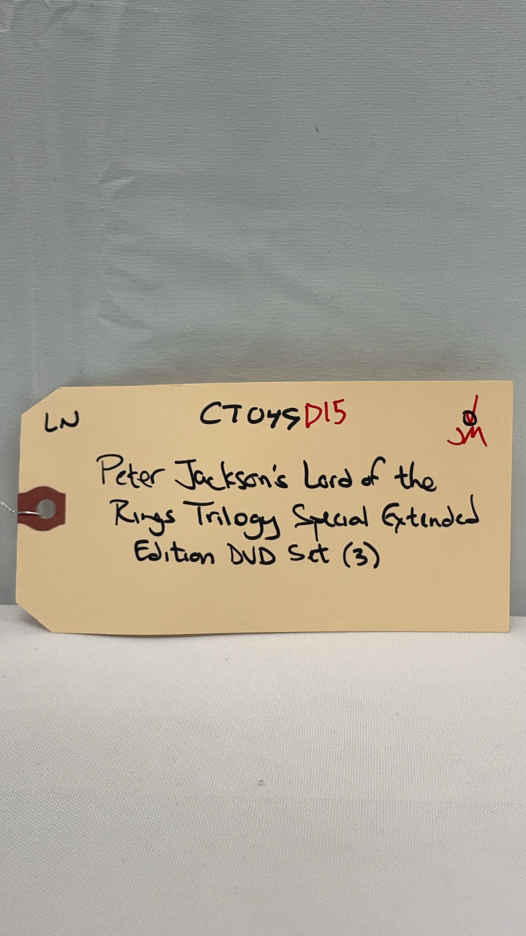 LN CTOYS D15 JM
Peter Jackson's Lord of the
Rings Trilogy Special Extended
Edition DVD Set (3)